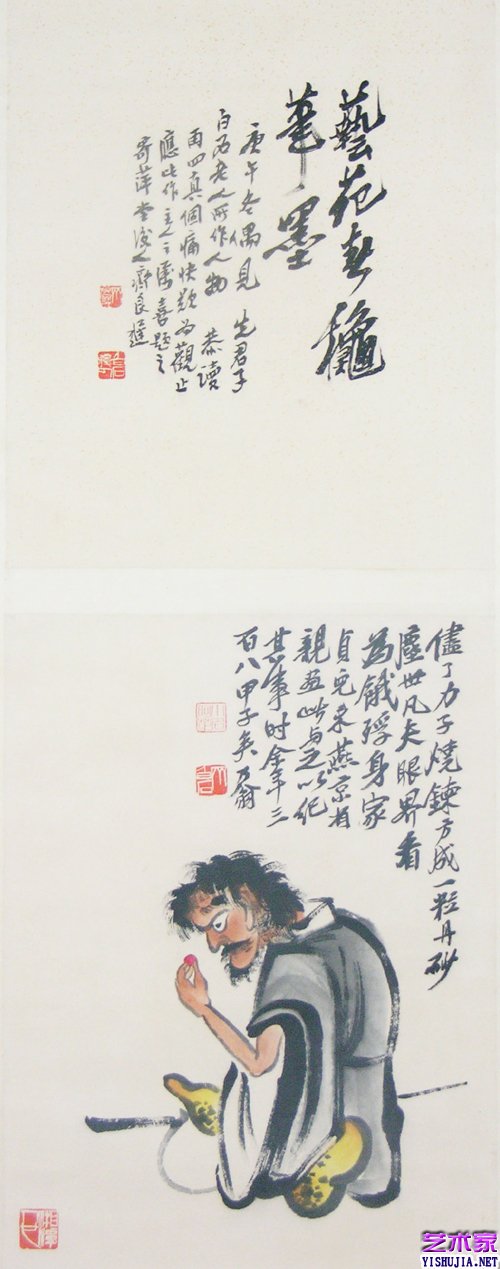 藝苑春龝
筆墨
庚午冬偶見 先君子
白石老人所作人物 恭讀
再四真個痛快歎為觀止
應此作主人之囑喜題之
寄萍堂後人齊良遲
儘了力子燒鍊方成一粒丹砂
塵世凡夫眼界看
為餓殍身家
貞兒來燕京省
親畫此与之以紀
其事時余年三
百八甲子矣 乃翁
艺术家
YISHUJIA.NET